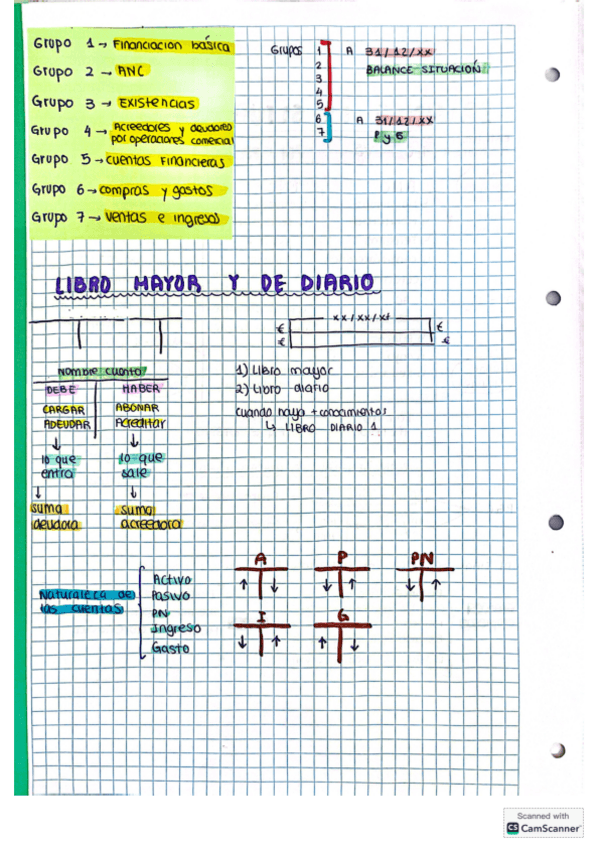 Grupo 1 → Financiación básica
Grupo 2 → ANC
Grupo 3 → Existencias
Grupo 4 → Acreedores y deudores
por operaciones comercial
Grupo 5 → cuentas Financieras
Grupo 6 → compras y gastos
Grupo 7 → ventas e ingresos
Grupos 1 A 31/12/xx
2 BALANCE SITUACIÓN
3
4
5
6 A 31/12/xx
7 P y G
LIBRO MAYOR Y DE DIARIO
xx/xx/xx
€ €
€ €
Nombre cuenta
DEBE HABER
CARGAR ABONAR
ADEUDAR Acreditar
↓ ↓
lo que lo que
entra sale
↓ ↓
suma suma
deudora acreedora
1) Libro mayor
2) Libro diario
cuando haya + conocimientos
↳ LIBRO DIARIO 1
Naturaleza de
las cuentas
Activo
Pasivo
PN
Ingreso
Gasto
A P PN
↑ ↓ ↓ ↑ ↓ ↑
I G
↓ ↑ ↑ ↓
Scanned with
CS CamScanner